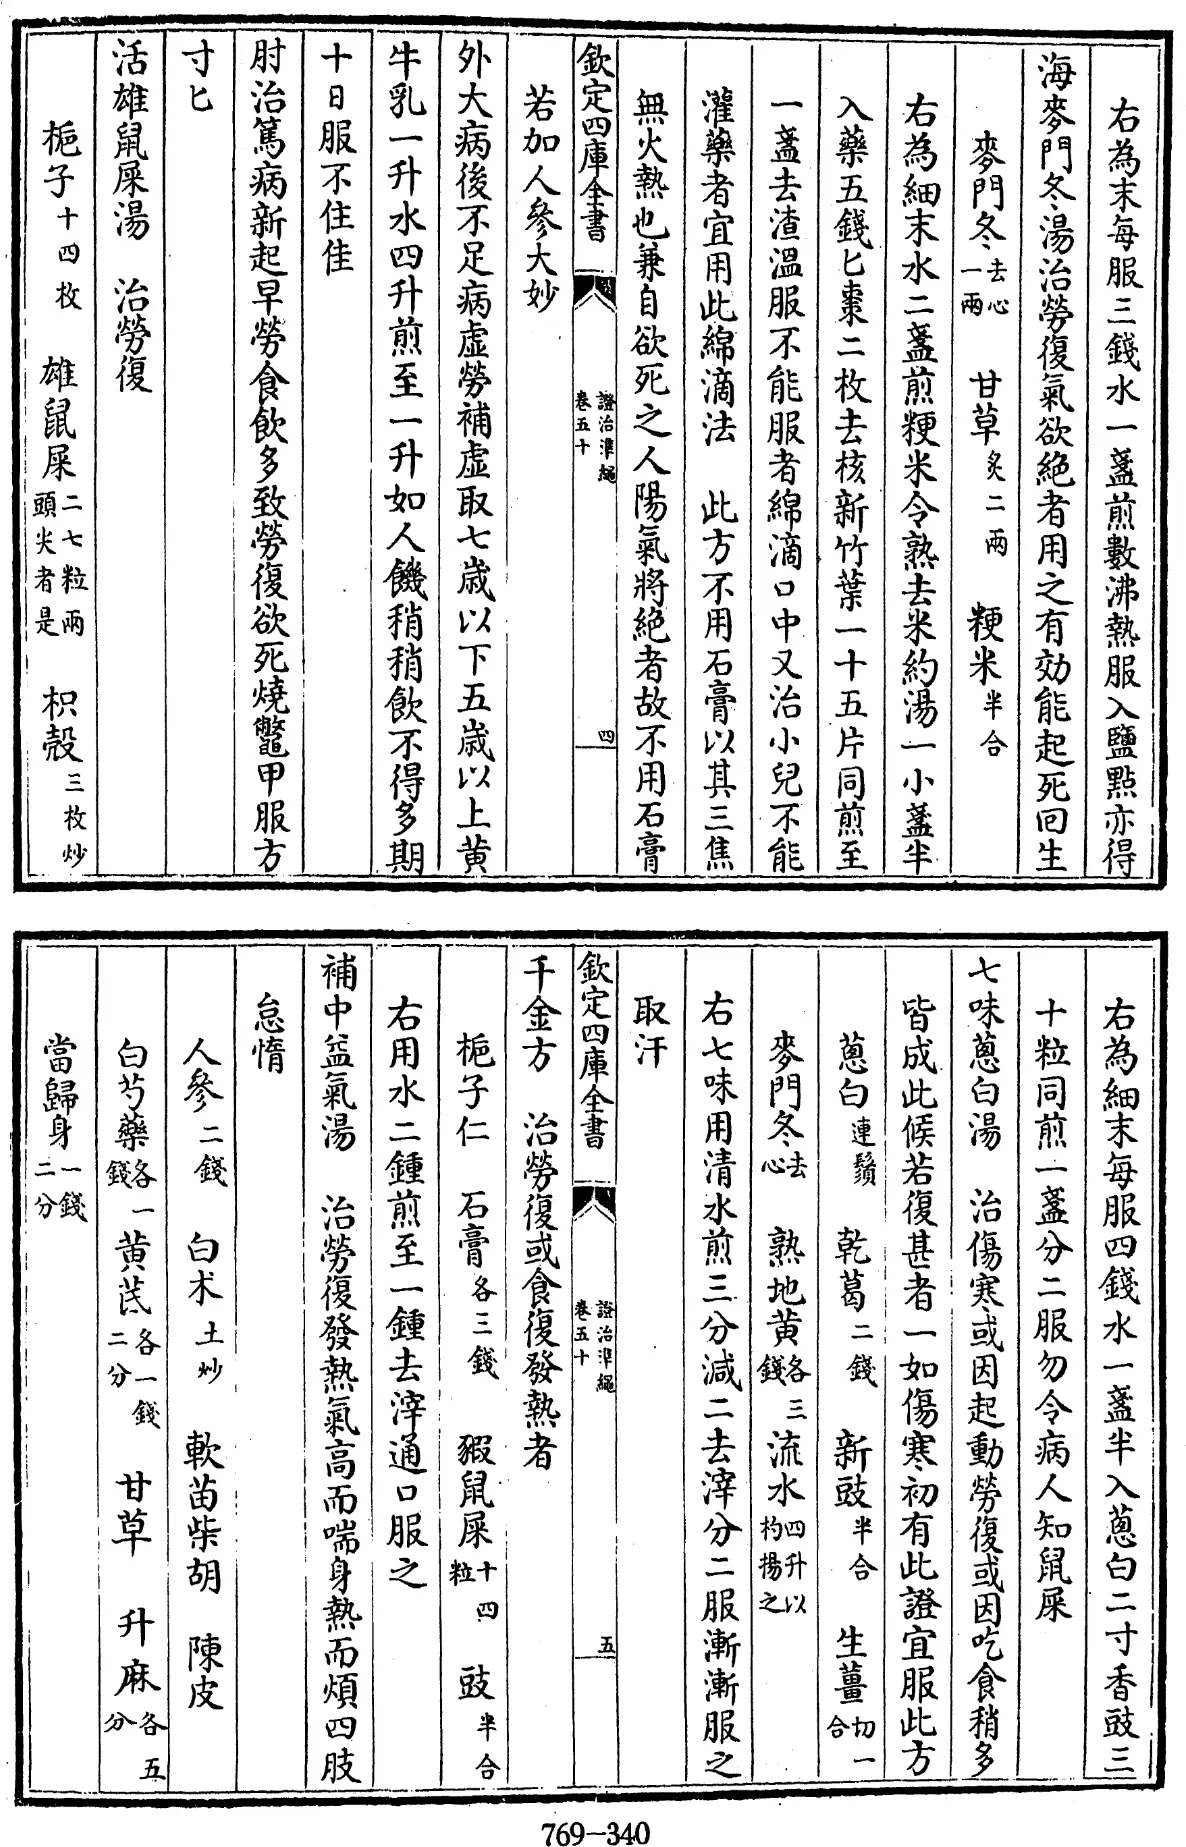 右為末每服三錢水一盞煎數沸熱服入鹽點亦得
海麥門冬湯治勞復氣欲絕者用之有効能起死回生
麥門冬去心一兩　甘草炙二兩　粳米半合
右為細末水二盞煎粳米令熟去米約湯一小盞半
入藥五錢匕棗二枚去核新竹葉一十五片同煎至
一盞去渣溫服不能服者綿滴口中又治小兒不能
灌藥者宜用此綿滴法　此方不用石膏以其三焦
無火熱也兼自欲死之人陽氣將絕者故不用石膏
欽定四庫全書　證治準繩卷五十　四
若加人參大妙
外大病後不足病虛勞補虛取七歲以下五歲以上黄
牛乳一升水四升煎至一升如人饑稍稍飲不得多期
十日服不住佳
肘治篤病新起早勞食飲多致勞復欲死燒鼈甲服方
寸匕
活雄鼠屎湯　治勞復
梔子十四枚　雄鼠屎二七粒兩頭尖者是　枳殼三枚炒
右為細末每服四錢水一盞半入蔥白二寸香豉三
十粒同煎一盞分二服勿令病人知鼠屎
七味蔥白湯　治傷寒或因起動勞復或因吃食稍多
皆成此候若復甚者一如傷寒初有此證宜服此方
蔥白連鬚　乾葛二錢　新豉半合　生薑切一合
麥門冬去心　熟地黄各三錢　流水四升以杓揚之
右七味用清水煎三分減二去滓分二服漸漸服之
取汗
欽定四庫全書　證治準繩卷五十　五
千金方　治勞復或食復發熱者
梔子仁　石膏各三錢　豭鼠屎十四粒　豉半合
右用水二鍾煎至一鍾去滓通口服之
補中益氣湯　治勞復發熱氣高而喘身熱而煩四肢
怠惰
人參二錢　白术土炒　軟苗柴胡　陳皮
白芍藥各一錢　黄芪各一錢二分　甘草　升麻各五分
當歸身一錢二分
769-340